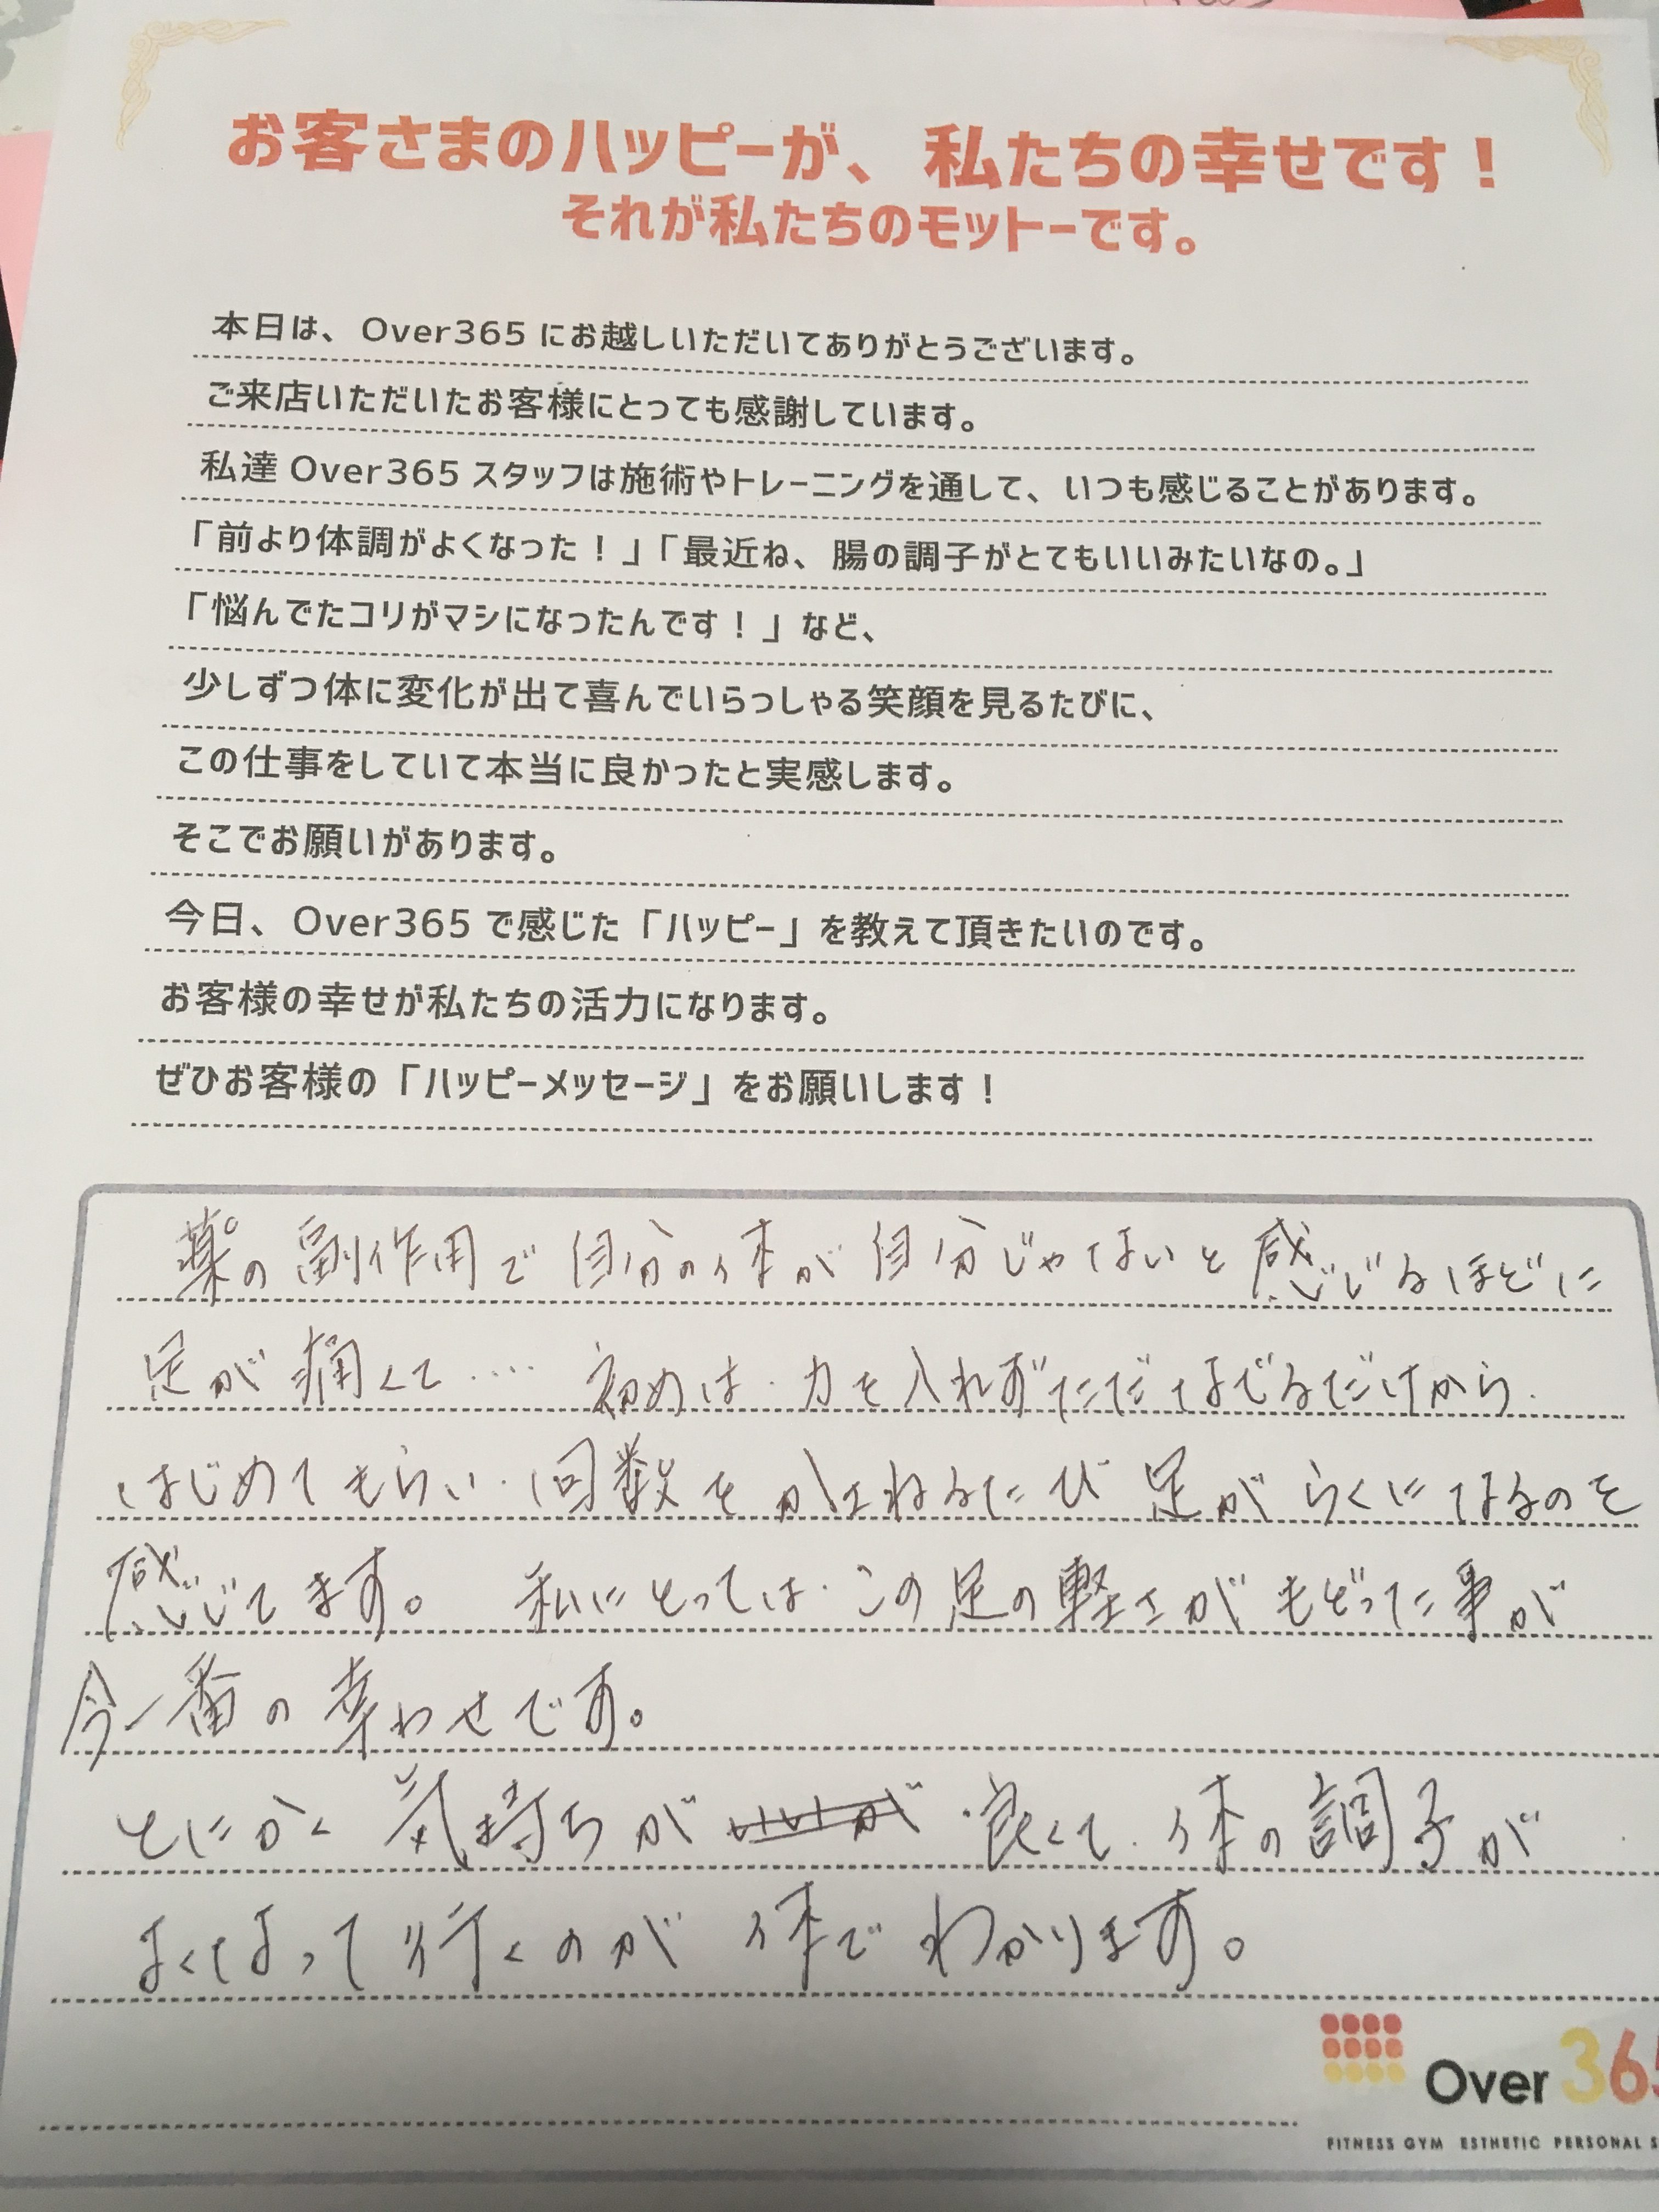 お客さまのハッピーが、私たちの幸せです！
それが私たちのモットーです。
本日は、Over365にお越しいただいてありがとうございます。
ご来店いただいたお客様にとっても感謝しています。
私達Over365スタッフは施術やトレーニングを通して、いつも感じることがあります。
「前より体調がよくなった！」「最近ね、腸の調子がとてもいいみたいなの。」
「悩んでたコリがマシになったんです！」など、
少しずつ体に変化が出て喜んでいらっしゃる笑顔を見るたびに、
この仕事をしていて本当に良かったと実感します。
そこでお願いがあります。
今日、Over365で感じた「ハッピー」を教えて頂きたいのです。
お客様の幸せが私たちの活力になります。
ぜひお客様の「ハッピーメッセージ」をお願いします！
薬の副作用で自分の体が自分じゃないと感じるほどに
足が痛くて…… 初めは、力を入れずただなでるだけから、
はじめてもらい、回数をかさねるたび足がらくになるのを
感じてます。 私にとっては、この足の軽さがもどった事が
今一番の幸わせです。
とにかく気持ちが 良くて、体の調子が
よくなって行くのが体でわかります。
Over 365
FITNESS GYM ESTHETIC PERSONAL